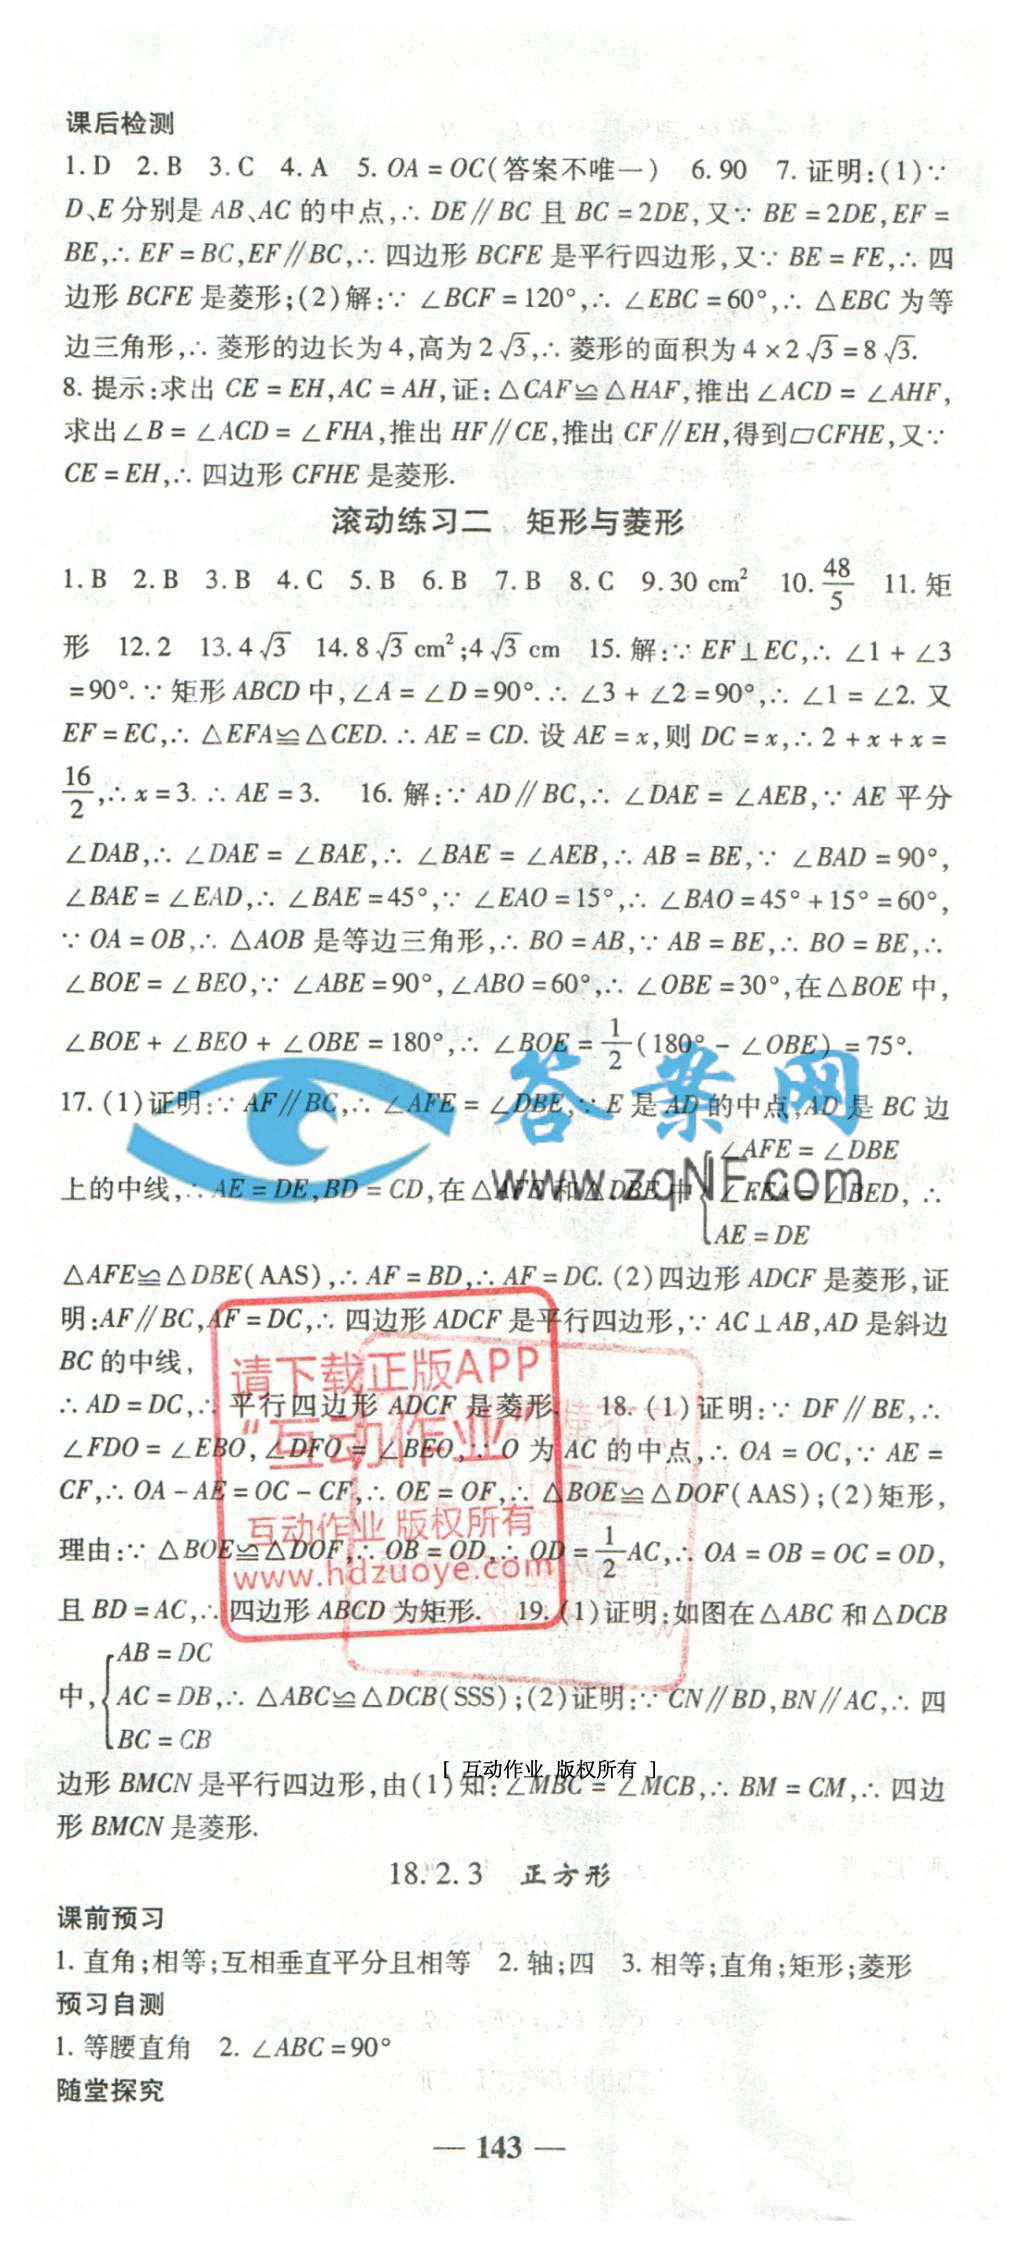 课后检测
1. D  2. B  3. C  4. A  5. OA = OC(答案不唯一)  6. 90  7. 证明:(1)∵
D、E 分别是 AB、AC 的中点,∴ DE∥BC 且 BC = 2DE,又∵ BE = 2DE,EF =
BE,∴ EF = BC,EF∥BC,∴ 四边形 BCFE 是平行四边形,又∵ BE = FE,∴ 四
边形 BCFE 是菱形;(2)解:∵ ∠BCF = 120°,∴ ∠EBC = 60°,∴ △EBC 为等
边三角形,∴ 菱形的边长为 4,高为 2√3,∴ 菱形的面积为 4 × 2√3 = 8√3.
8. 提示:求出 CE = EH,AC = AH,证:△CAF≌△HAF,推出 ∠ACD = ∠AHF,
求出∠B = ∠ACD = ∠FHA,推出 HF∥CE,推出 CF∥EH,得到▱CFHE,又∵
CE = EH,∴ 四边形 CFHE 是菱形.
滚动练习二  矩形与菱形
1. B  2. B  3. B  4. C  5. B  6. B  7. B  8. C  9. 30 cm²  10. 48/5  11. 矩
形  12. 2  13. 4√3  14. 8√3 cm²;4√3 cm  15. 解:∵ EF⊥EC,∴ ∠1 + ∠3
= 90°. ∵ 矩形 ABCD 中,∠A = ∠D = 90°. ∴ ∠3 + ∠2 = 90°,∴ ∠1 = ∠2. 又
EF = EC,∴ △EFA≌△CED. ∴ AE = CD. 设 AE = x,则 DC = x,∴ 2 + x + x =
16/2,∴ x = 3. ∴ AE = 3.  16. 解:∵ AD∥BC,∴ ∠DAE = ∠AEB,∵ AE 平分
∠DAB,∴ ∠DAE = ∠BAE,∴ ∠BAE = ∠AEB,∴ AB = BE,∵ ∠BAD = 90°,
∠BAE = ∠EAD,∴ ∠BAE = 45°,∵ ∠EAO = 15°,∴ ∠BAO = 45° + 15° = 60°,
∵ OA = OB,∴ △AOB 是等边三角形,∴ BO = AB,∵ AB = BE,∴ BO = BE,∴
∠BOE = ∠BEO,∵ ∠ABE = 90°,∠ABO = 60°,∴ ∠OBE = 30°,在△BOE 中,
∠BOE + ∠BEO + ∠OBE = 180°,∴ ∠BOE = 1/2(180° - ∠OBE) = 75°.
答案网
17. (1)证明:∵ AF∥BC,∴ ∠AFE = ∠DBE,∵ E 是 AD 的中点,AD 是 BC 边
∠AFE = ∠DBE
上的中线,∴ AE = DE,BD = CD,在△AFE 和△DBE 中{∠FEA = ∠BED, ∴
www.zqNF.com
AE = DE
△AFE≌△DBE(AAS),∴ AF = BD,∴ AF = DC. (2)四边形 ADCF 是菱形,证
明:AF∥BC,AF = DC,∴ 四边形 ADCF 是平行四边形,∵ AC⊥AB,AD 是斜边
BC 的中线,
请下载正版APP
∴ AD = DC,∴ 平行四边形 ADCF 是菱形.  18. (1)证明:∵ DF∥BE,∴
“互动作业”
∠FDO = ∠EBO,∠DFO = ∠BEO,∵ O 为 AC 的中点,∴ OA = OC,∵ AE =
CF,∴ OA - AE = OC - CF,∴ OE = OF,∴ △BOE≌△DOF(AAS);(2)矩形,
互动作业 版权所有
理由:∵ △BOE≌△DOF,∴ OB = OD,∴ OD = 1/2 AC,∴ OA = OB = OC = OD,
www.hdzuoye.com
且 BD = AC,∴ 四边形 ABCD 为矩形.  19. (1)证明:如图在△ABC 和△DCB
AB = DC
中,{AC = DB,∴ △ABC≌△DCB(SSS);(2)证明:∵ CN∥BD,BN∥AC,∴ 四
BC = CB
[ 互动作业 版权所有 ]
边形 BMCN 是平行四边形,由(1)知:∠MBC = ∠MCB,∴ BM = CM,∴ 四边
形 BMCN 是菱形.
18. 2. 3  正方形
课前预习
1. 直角;相等;互相垂直平分且相等  2. 轴;四  3. 相等;直角;矩形;菱形
预习自测
1. 等腰直角  2. ∠ABC = 90°
随堂探究
— 143 —